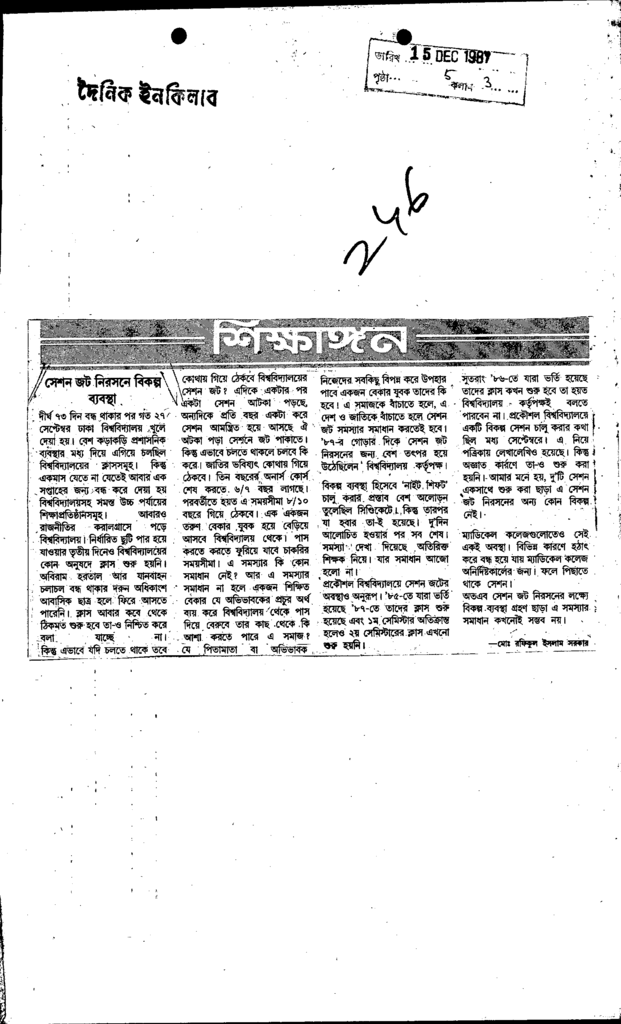 দৈনিক ইনকিলাব
তারিখ ... 15 DEC 1987
পৃষ্ঠা... 5 কলাম 3 ... ...
246
শিক্ষাঙ্গন
সেশন জট নিরসনে বিকল্প
ব্যবস্থা
দীর্ঘ ৭৩ দিন বন্ধ থাকার পর গত ২৭
সেপ্টেম্বর ঢাকা বিশ্ববিদ্যালয় খুলে
দেয়া হয়। বেশ কড়াকড়ি প্রশাসনিক
ব্যবস্থার মধ্য দিয়ে এগিয়ে চলছিল
বিশ্ববিদ্যালয়ের ক্লাসসমূহ। কিন্তু
একমাস যেতে না যেতেই আবার এক
সপ্তাহের জন্য বন্ধ করে দেয়া হয়
বিশ্ববিদ্যালয়সহ সমস্ত উচ্চ পর্যায়ের
শিক্ষাপ্রতিষ্ঠানসমূহ। আবারও
রাজনীতির করালগ্রাসে পড়ে
বিশ্ববিদ্যালয়। নির্ধারিত ছুটি পার হয়ে
যাওয়ার তৃতীয় দিনেও বিশ্ববিদ্যালয়ের
কোন অনুষদে ক্লাস শুরু হয়নি।
অবিরাম হরতাল আর যানবাহন
চলাচল বন্ধ থাকার দরুন অধিকাংশ
আবাসিক ছাত্র হলে ফিরে আসতে
পারেনি। ক্লাস আবার কবে থেকে
ঠিকমত শুরু হবে তা-ও নিশ্চিত করে
বলা যাচ্ছে না।
কিন্তু এভাবে যদি চলতে থাকে তবে
কোথায় গিয়ে ঠেকবে বিশ্ববিদ্যালয়ের
সেশন জট? এদিকে একটার পর
একটা সেশন আটকা পড়ছে,
অন্যদিকে প্রতি বছর একটা করে
সেশন আমন্ত্রিত হয়ে আসছে ঐ
আটকা পড়া সেশনে জট পাকাতে।
কিন্তু এভাবে চলতে থাকলে চলবে কি
করে। জাতির ভবিষ্যৎ কোথায় গিয়ে
ঠেকবে। তিন বছরের অনার্স কোর্স
শেষ করতে ৬/৭ বছর লাগছে।
পরবর্তীতে হয়ত এ সময়সীমা ৮/১০
বছরে গিয়ে ঠেকবে। এক একজন
তরুণ বেকার যুবক হয়ে বেড়িয়ে
আসবে বিশ্ববিদ্যালয় থেকে। পাস
করতে করতে ফুরিয়ে যাবে চাকরির
সময়সীমা। এ সমস্যার কি কোন
সমাধান নেই? আর এ সমস্যার
সমাধান না হলে একজন শিক্ষিত
বেকার যে অভিভাবকের প্রচুর অর্থ
ব্যয় করে বিশ্ববিদ্যালয় থেকে পাস
দিয়ে বেরুবে তার কাছ থেকে কি
আশা করতে পারে এ সমাজ?
যে পিতামাতা বা অভিভাবক
নিজেদের সবকিছু বিপন্ন করে উপহার
পাবে একজন বেকার যুবক তাদের কি
হবে। এ সমাজকে বাঁচাতে হলে, এ
দেশ ও জাতিকে বাঁচাতে হলে সেশন
জট সমস্যার সমাধান করতেই হবে।
'৮৭-র গোড়ার দিকে সেশন জট
নিরসনের জন্য বেশ তৎপর হয়ে
উঠেছিলেন বিশ্ববিদ্যালয় কর্তৃপক্ষ।
বিকল্প ব্যবস্থা হিসেবে 'নাইট শিফট'
চালু করার প্রস্তাব বেশ আলোড়ন
তুলেছিল সিণ্ডিকেটে। কিন্তু তারপর
যা হবার তা-ই হয়েছে। দু'দিন
আলোচিত হওয়ার পর সব শেষ।
সমস্যা দেখা দিয়েছে অতিরিক্ত
শিক্ষক নিয়ে। যার সমাধান আজো
হলো না।
প্রকৌশল বিশ্ববিদ্যালয়ে সেশন জটের
অবস্থাও অনুরূপ। '৮৫-তে যারা ভর্তি
হয়েছে '৮৭-তে তাদের ক্লাস শুরু
হয়েছে এবং ১ম সেমিস্টার অতিক্রান্ত
হলেও ২য় সেমিস্টারের ক্লাস এখনো
শুরু হয়নি।
সুতরাং '৮৬-তে যারা ভর্তি হয়েছে
তাদের ক্লাস কখন শুরু হবে তা হয়ত
বিশ্ববিদ্যালয় কর্তৃপক্ষই বলতে
পারবেন না। প্রকৌশল বিশ্ববিদ্যালয়ে
একটি বিকল্প সেশন চালু করার কথা
ছিল মধ্য সেপ্টেম্বরে। এ নিয়ে
পত্রিকায় লেখালেখিও হয়েছে। কিন্তু
অজ্ঞাত কারণে তা-ও শুরু করা
হয়নি। আমার মনে হয়, দু'টি সেশন
একসাথে শুরু করা ছাড়া এ সেশন
জট নিরসনের অন্য কোন বিকল্প
নেই।
ম্যাডিকেল কলেজগুলোতেও সেই
একই অবস্থা। বিভিন্ন কারণে হঠাৎ
করে বন্ধ হয়ে যায় ম্যাডিকেল কলেজ
অনির্দিষ্টকালের জন্য। ফলে পিছাতে
থাকে সেশন।
অতএব সেশন জট নিরসনের লক্ষ্যে
বিকল্প ব্যবস্থা গ্রহণ ছাড়া এ সমস্যার
সমাধান কখনোই সম্ভব নয়।
—মোঃ রফিকুল ইসলাম সরকার